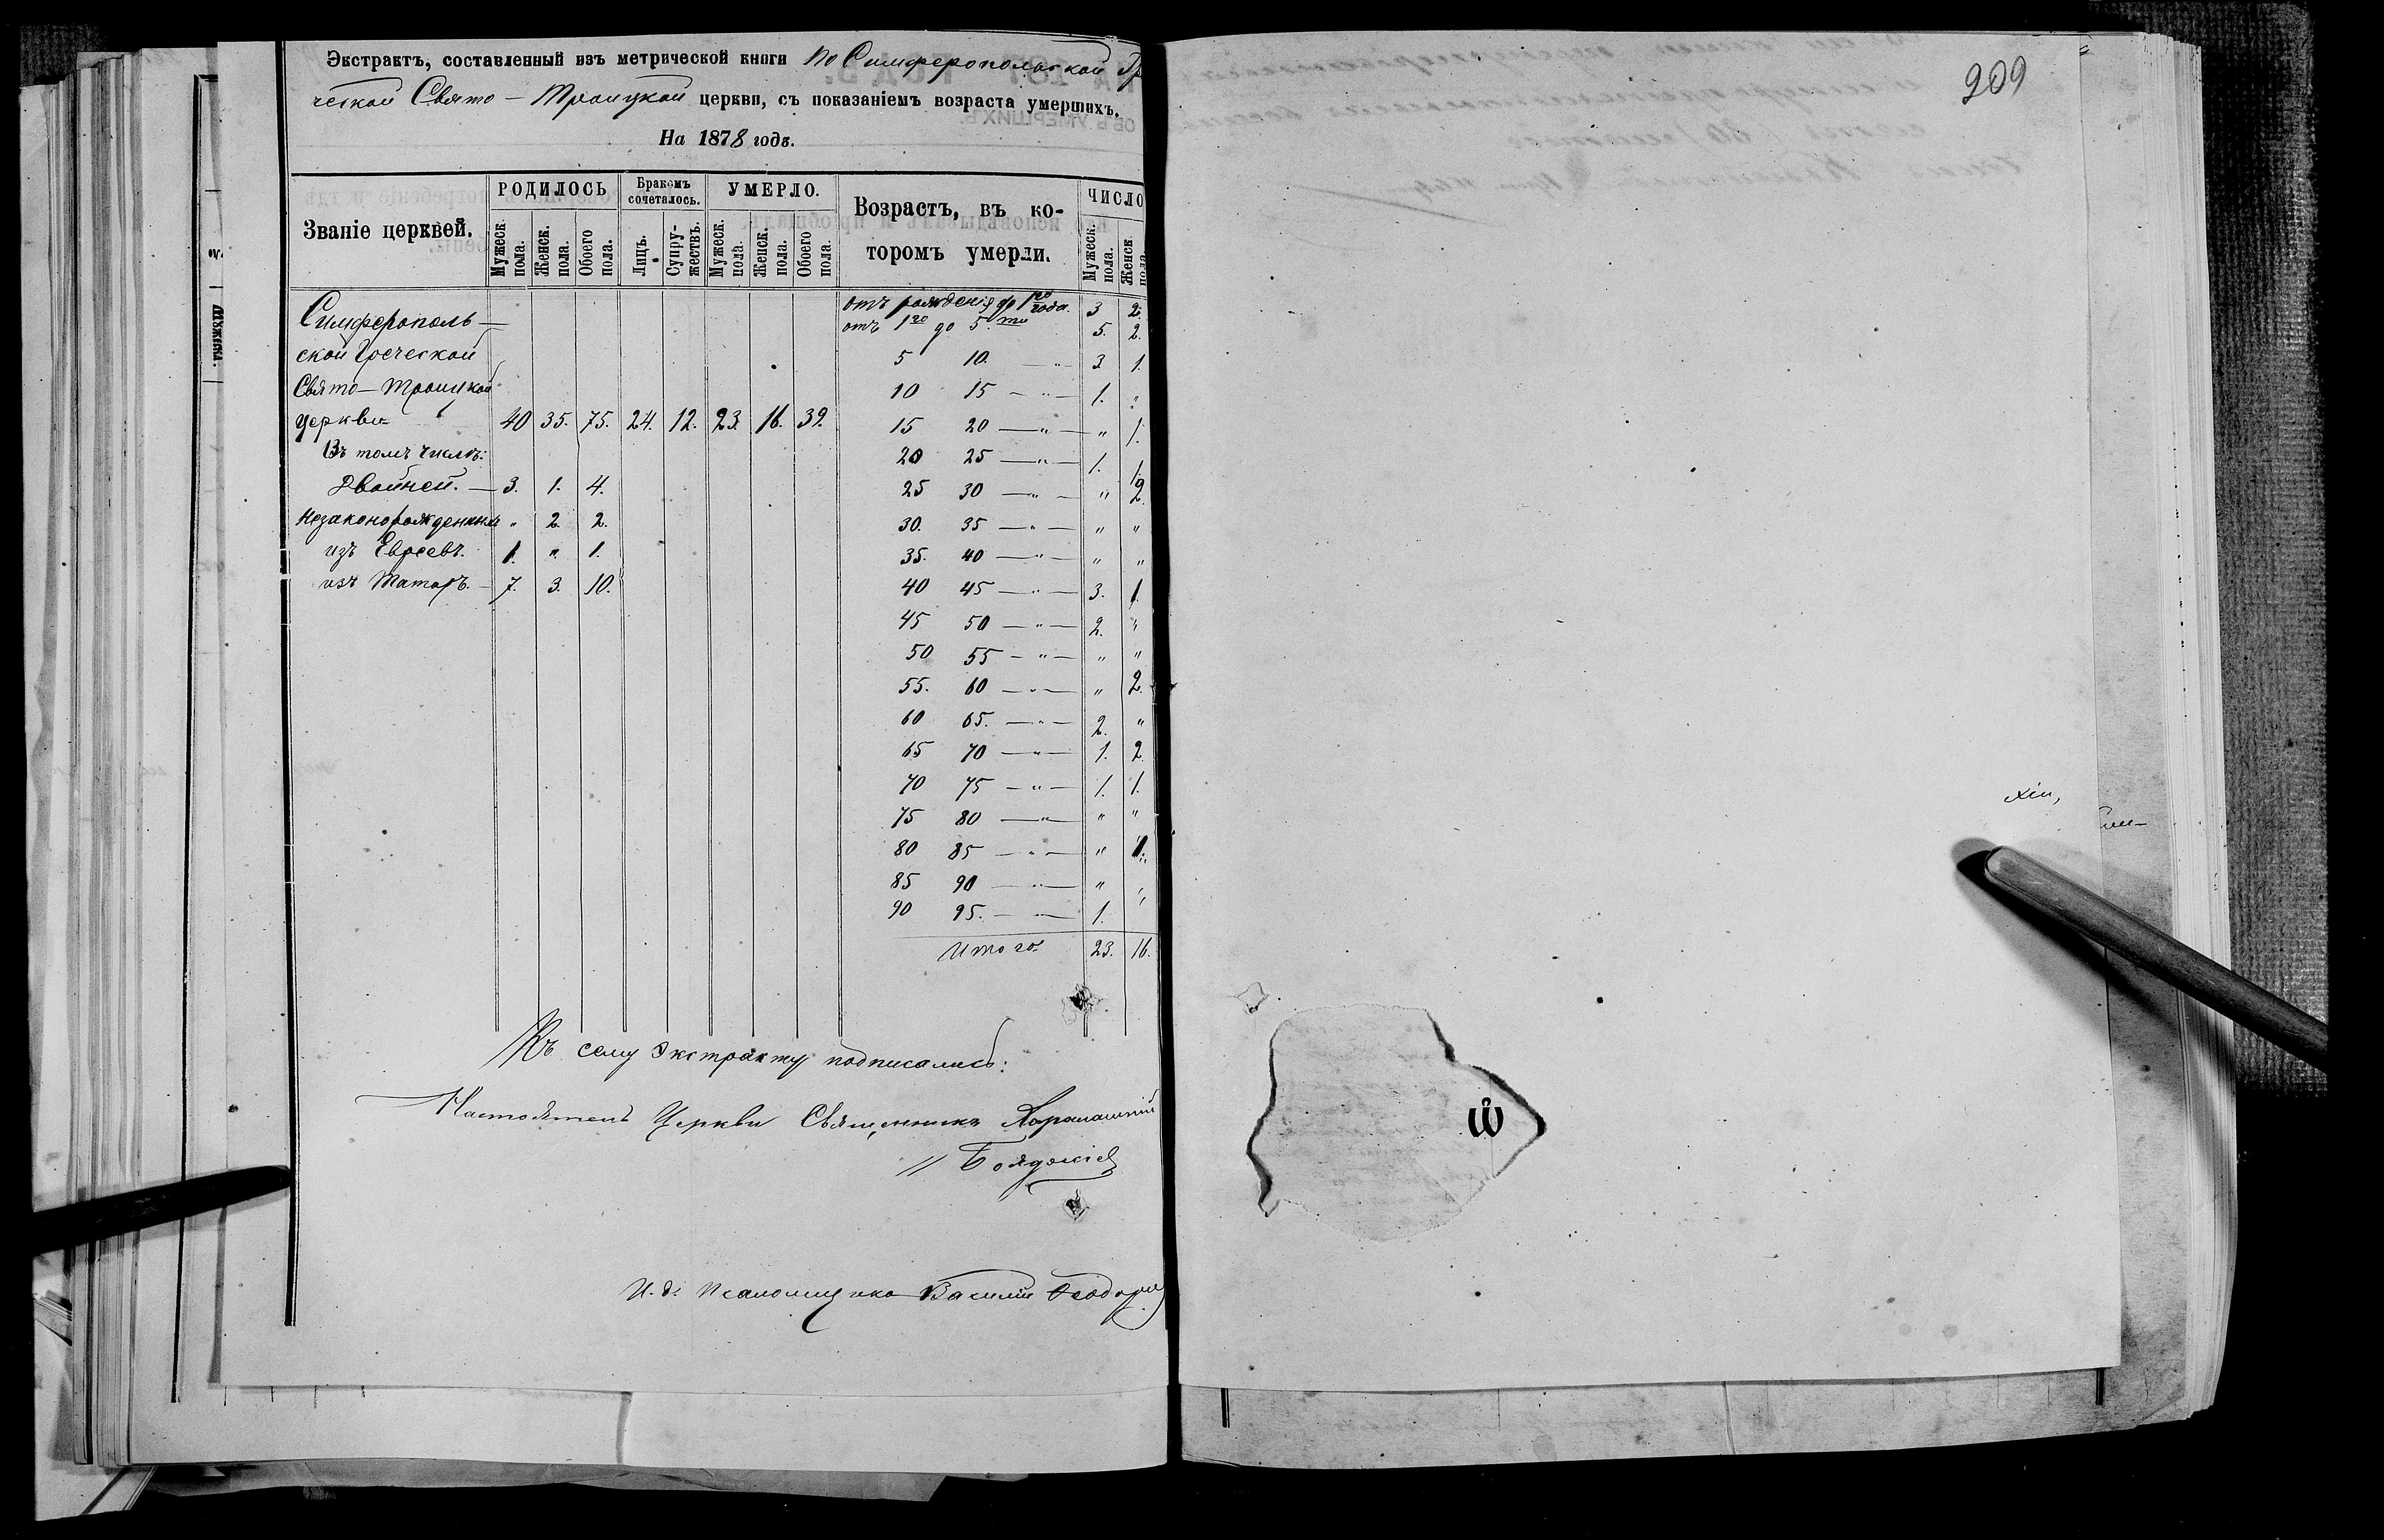 Экстрактъ, составленный изъ метрической книги по Симферопольской Гре
ческой Свято-Троицкой церкви, съ показаніемъ возраста умершихъ.
На 1878 годъ.
Званіе церквей. РОДИЛОСЬ Бракомъ сочеталось. УМЕРЛО. Возрастъ, въ ко- ЧИСЛО
тромъ умерли.
Мужеск. пола. Женск. пола. Обоего пола. Лицъ. Супру-жествъ. Мужеск. пола. Женск. пола. Обоего пола. Мужеск. пола. Женск. пола.
Симферополь-
ской Греческой
Свято-Троицкой
церкви 40 35. 75. 24. 12. 23. 16. 39.
Въ томъ числѣ:
Двойней. — 3. 1. 4.
Незаконорожденныхъ " 2. 2.
изъ Евреевъ. 1. " 1.
изъ Татаръ. — 7. 3. 10.
отъ рожденія до 1го года. 3 2.
отъ 1го до 5.ти 5. 2.
5 10. — " — 3 1.
10 15 — " — 1. "
15 20 — " — " 1.
20 25 — " — 1. 1.
25 30 — " — " 2.
30. 35 — " — " "
35. 40 — " — " "
40 45 — " — 3. 1.
45 50 — " — 2. "
50 55 — " — " "
55. 60 — " — " 2.
60 65. — " — 2. "
65 70 — " — 1. 2
70 75 — " — 1. 1.
75 80 — " — " "
80 85 — " — " 1.
85 90 — " — " "
90 95. — " — 1.
Итого. 23. 16.
Къ сему экстракту подписались:
Настоятель Церкви Священникъ Харлампій
" Бояджіев
И. д. Псаломщика Василій Ѳеодори
909
хіи,
Сим-